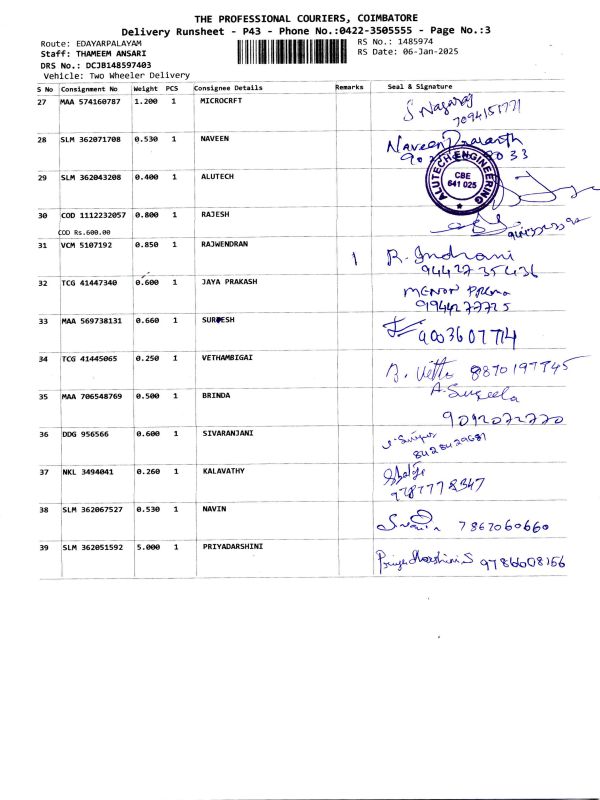 THE PROFESSIONAL COURIERS, COIMBATORE
Delivery Runsheet - P43 - Phone No.:0422-3505555 - Page No.:3
Route: EDAYARPALAYAM
RS No.: 1485974
Staff: THAMEEM ANSARI
RS Date: 06-Jan-2025
DRS No.: DCJB148597403
Vehicle: Two Wheeler Delivery
S No Consignment No Weight PCS Consignee Details Remarks Seal & Signature
27 MAA 574160787 1.200 1 MICROCRFT S Nagaraj
7094151771
28 SLM 362071708 0.530 1 NAVEEN Naveen Prasanth
29 SLM 362043208 0.400 1 ALUTECH
ALUTECH ENGINEERING
CBE
641 025
30 COD 1112232057 0.800 1 RAJESH
COD Rs.600.00
31 VCM 5107192 0.850 1 RAJWENDRAN 1 R. Indrani
9442735436
32 TCG 41447340 0.600 1 JAYA PRAKASH MENON PREMA
9944277725
33 MAA 569738131 0.660 1 SURESH 9003607714
34 TCG 41445065 0.250 1 VETHAMBIGAI B. Vetha 8870197745
35 MAA 706548769 0.500 1 BRINDA A. Suseela
9092072770
36 DDG 956566 0.600 1 SIVARANJANI
8428429681
37 NKL 3494041 0.260 1 KALAVATHY
9787778347
38 SLM 362067527 0.530 1 NAVIN 7867060660
39 SLM 362051592 5.000 1 PRIYADARSHINI Priyadharshini S 9786608156